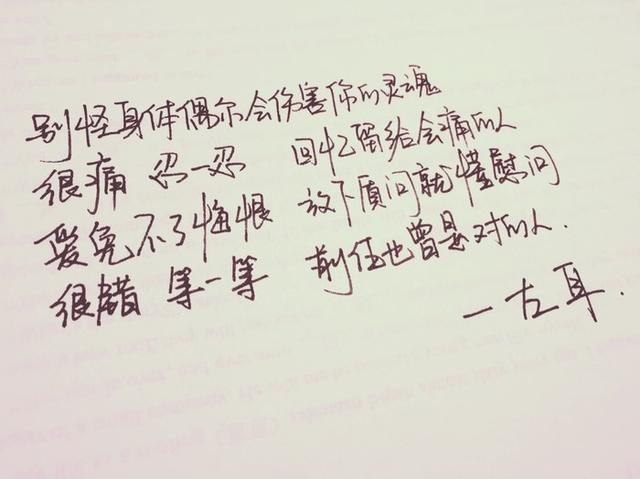 别怪身体偶尔会伤害你的灵魂
很痛 忍一忍 回忆留给会痛的人
爱免不了悔恨 放下质问就懂慰问
很错 等一等 前任也曾是对的人.
一左耳.